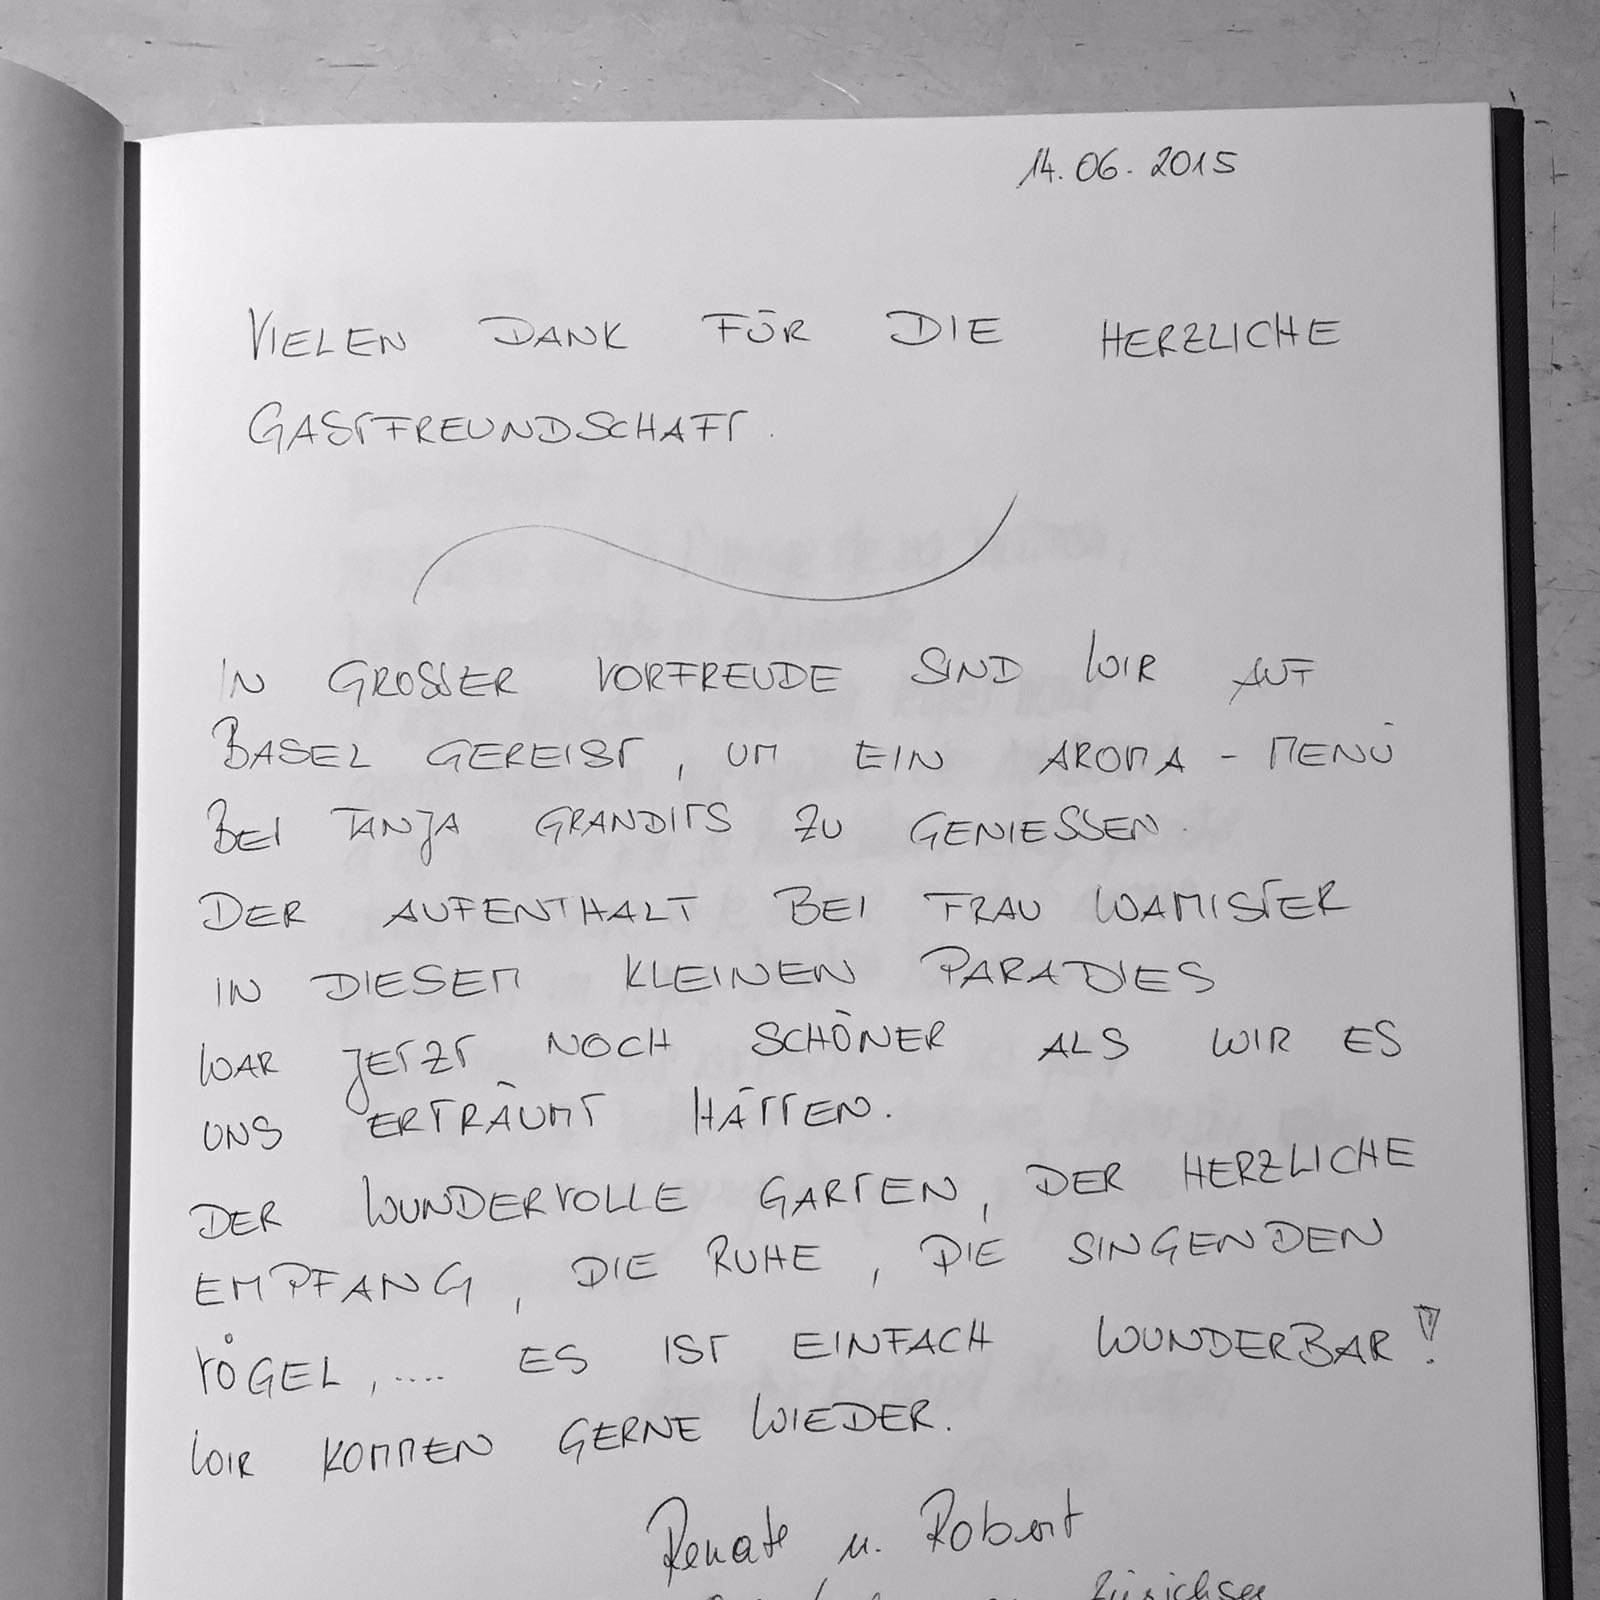 14.06.2015
VIELEN DANK FÜR DIE HERZLICHE
GASTFREUNDSCHAFT.
IN GROSSER VORFREUDE SIND WIR AUF
BASEL GEREIST, UM EIN AROMA-MENÜ
BEI TANJA GRANDITS ZU GENIESSEN.
DER AUFENTHALT BEI FRAU WAMISTER
IN DIESEM KLEINEN PARADIES
WAR JETZT NOCH SCHÖNER ALS WIR ES
UNS ERTRÄUMT HÄTTEN.
DER WUNDERVOLLE GARTEN, DER HERZLICHE
EMPFANG, DIE RUHE, DIE SINGENDEN
VÖGEL,.... ES IST EINFACH WUNDERBAR!
WIR KOMMEN GERNE WIEDER.
Renate u. Robert
Zürichsee